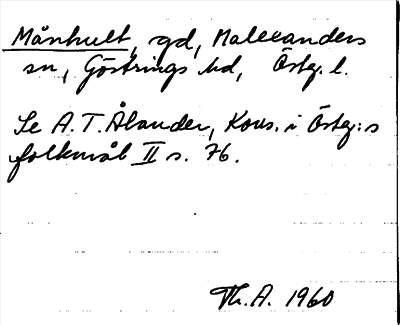 Månhult, gd, Malexanders
sn, Göstrings hd, Östg. l.
Se A. T. Ålander, Kons. i Östg:s
folkmål II s. 76.
Th. A. 1960